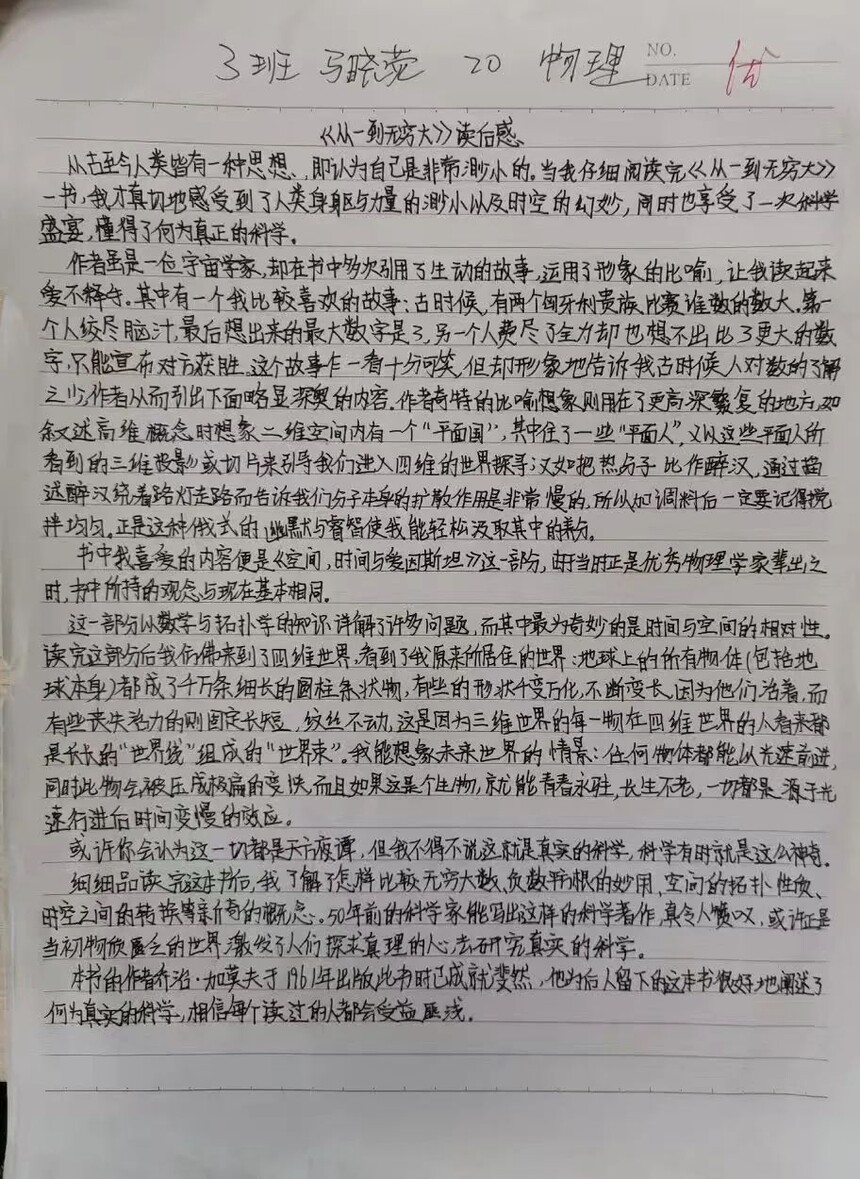 3班 马晓荧 20 物理 NO.
DATE
优
《从一到无穷大》读后感
从古至今人类皆有一种思想,即认为自己是非常渺小的。当我仔细阅读完《从一到无穷大》
一书,我才真切地感受到了人类身躯与力量的渺小以及时空的幻妙,同时也享受了一次科学
盛宴,懂得了何为真正的科学。
作者虽是一位宇宙学家,却在书中多次引用了生动的故事,运用了形象的比喻,让我读起来
爱不释手。其中有一个我比较喜欢的故事:古时候,有两个匈牙利贵族比赛谁数的数大。第一
个人绞尽脑汁,最后想出来的最大数字是3,另一个人费尽了全力却也想不出比3更大的数
字,只能宣布对方获胜。这个故事乍一看十分可笑,但却形象地告诉我古时候人对数的了解
之少,作者从而引出下面略显深奥的内容。作者奇特的比喻想象则用在了更高深繁复的地方,如
叙述高维概念时想象二维空间内有一个“平面国”,其中住了一些“平面人”,又以这些平面人所
看到的三维投影或切片来引导我们进入四维的世界探寻;又如把热分子比作醉汉,通过描
述醉汉绕着路灯走路而告诉我们分子本身的扩散作用是非常慢的,所以加调料后一定要记得搅
拌均匀。正是这种俄式的幽默与睿智使我能轻松汲取其中的养分。
书中我喜爱的内容便是《空间,时间与爱因斯坦》这一部分,由于当时正是优秀物理学家辈出之
时,书中所持的观念与现在基本相同。
这一部分以数学与拓扑学的知识详解了许多问题,而其中最为奇妙的是时间与空间的相对性。
读完这部分后我仿佛来到了四维世界,看到了我原来所居住的世界:地球上的所有物体(包括地
球本身)都成了千万条细长的圆柱条状物,有些的形状千变万化,不断变长,因为他们活着,而
有些丧失活力的则固定长短,纹丝不动,这是因为三维世界的每一物在四维世界的人看来都
是长长的“世界线”组成的“世界束”。我能想象未来世界的情景:任何物体都能以光速前进,
同时此物会被压成极扁的变快,而且如果这是个生物,就能青春永驻,长生不老,一切都是源于光
速行进后时间变慢的效应。
或许你会认为这一切都是天方夜谭,但我不得不说这就是真实的科学,科学有时就是这么神奇。
细细品读完这本书后,我了解了怎样比较无穷大数、负数平方根的妙用,空间的拓扑性质、
时空之间的转换等新奇的概念。50年前的科学家能写出这样的科学著作,真令人赞叹,或许正是
当初物质匮乏的世界激发了人们探求真理的心,去研究真实的科学。
本书的作者乔治·加莫夫于1961年出版此书时已成就斐然,他为后人留下的这本书很好地阐述了
何为真实的科学,相信每个读过的人都会受益匪浅。